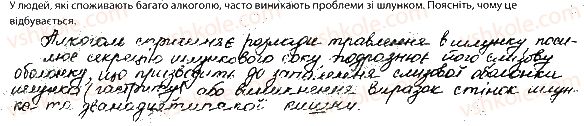 У людей, які споживають багато алкоголю, часто виникають проблеми зі шлунком. Поясніть, чому це
відбувається.
Алкоголь спричиняє розлади травлення в шлунку поси-
лює секрецію шлункового соку, подразнює його слизову
оболонку, що призводить до запалення слизової оболонки
шлунка (гастриту) або виникнення виразок стінок шлун-
ка та дванадцятипалої кишки.